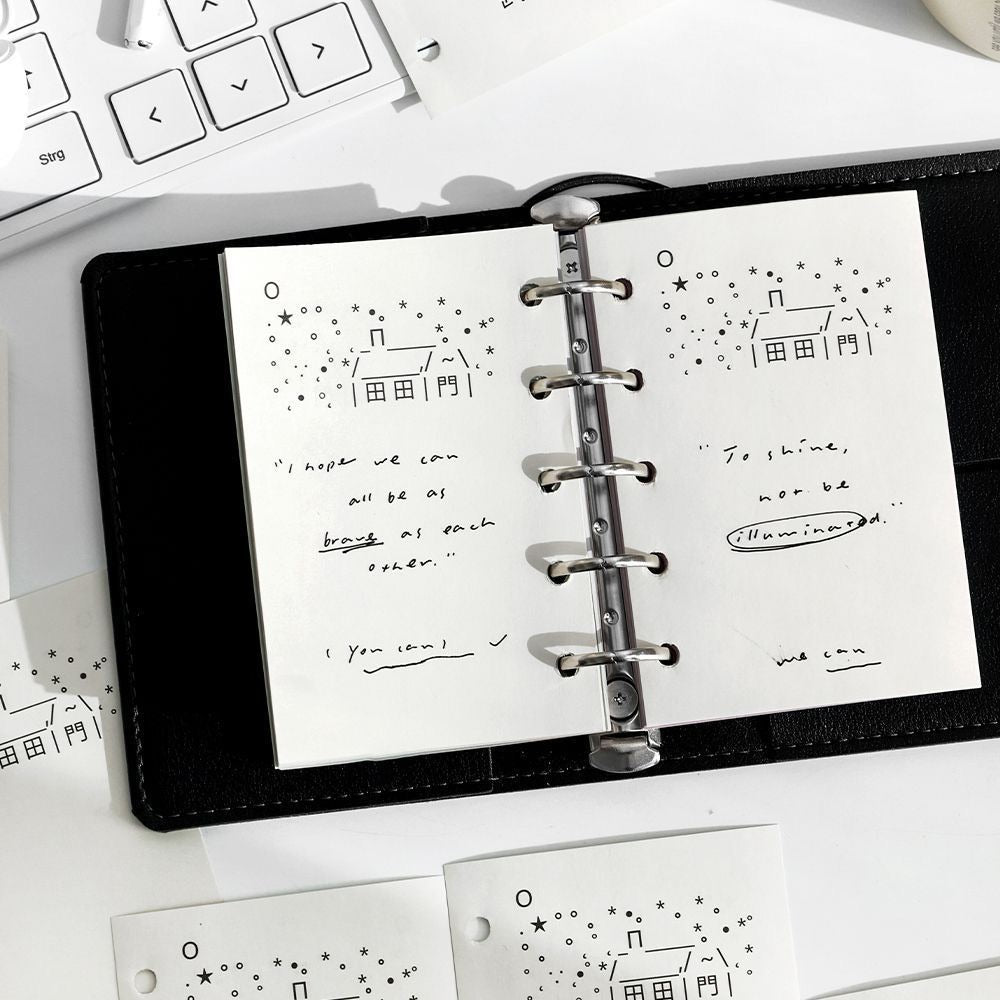 Strg
"I hope we can
all be as
brave as each
other."
(you can) ✓
"To shine,
not be
illuminated."
we can